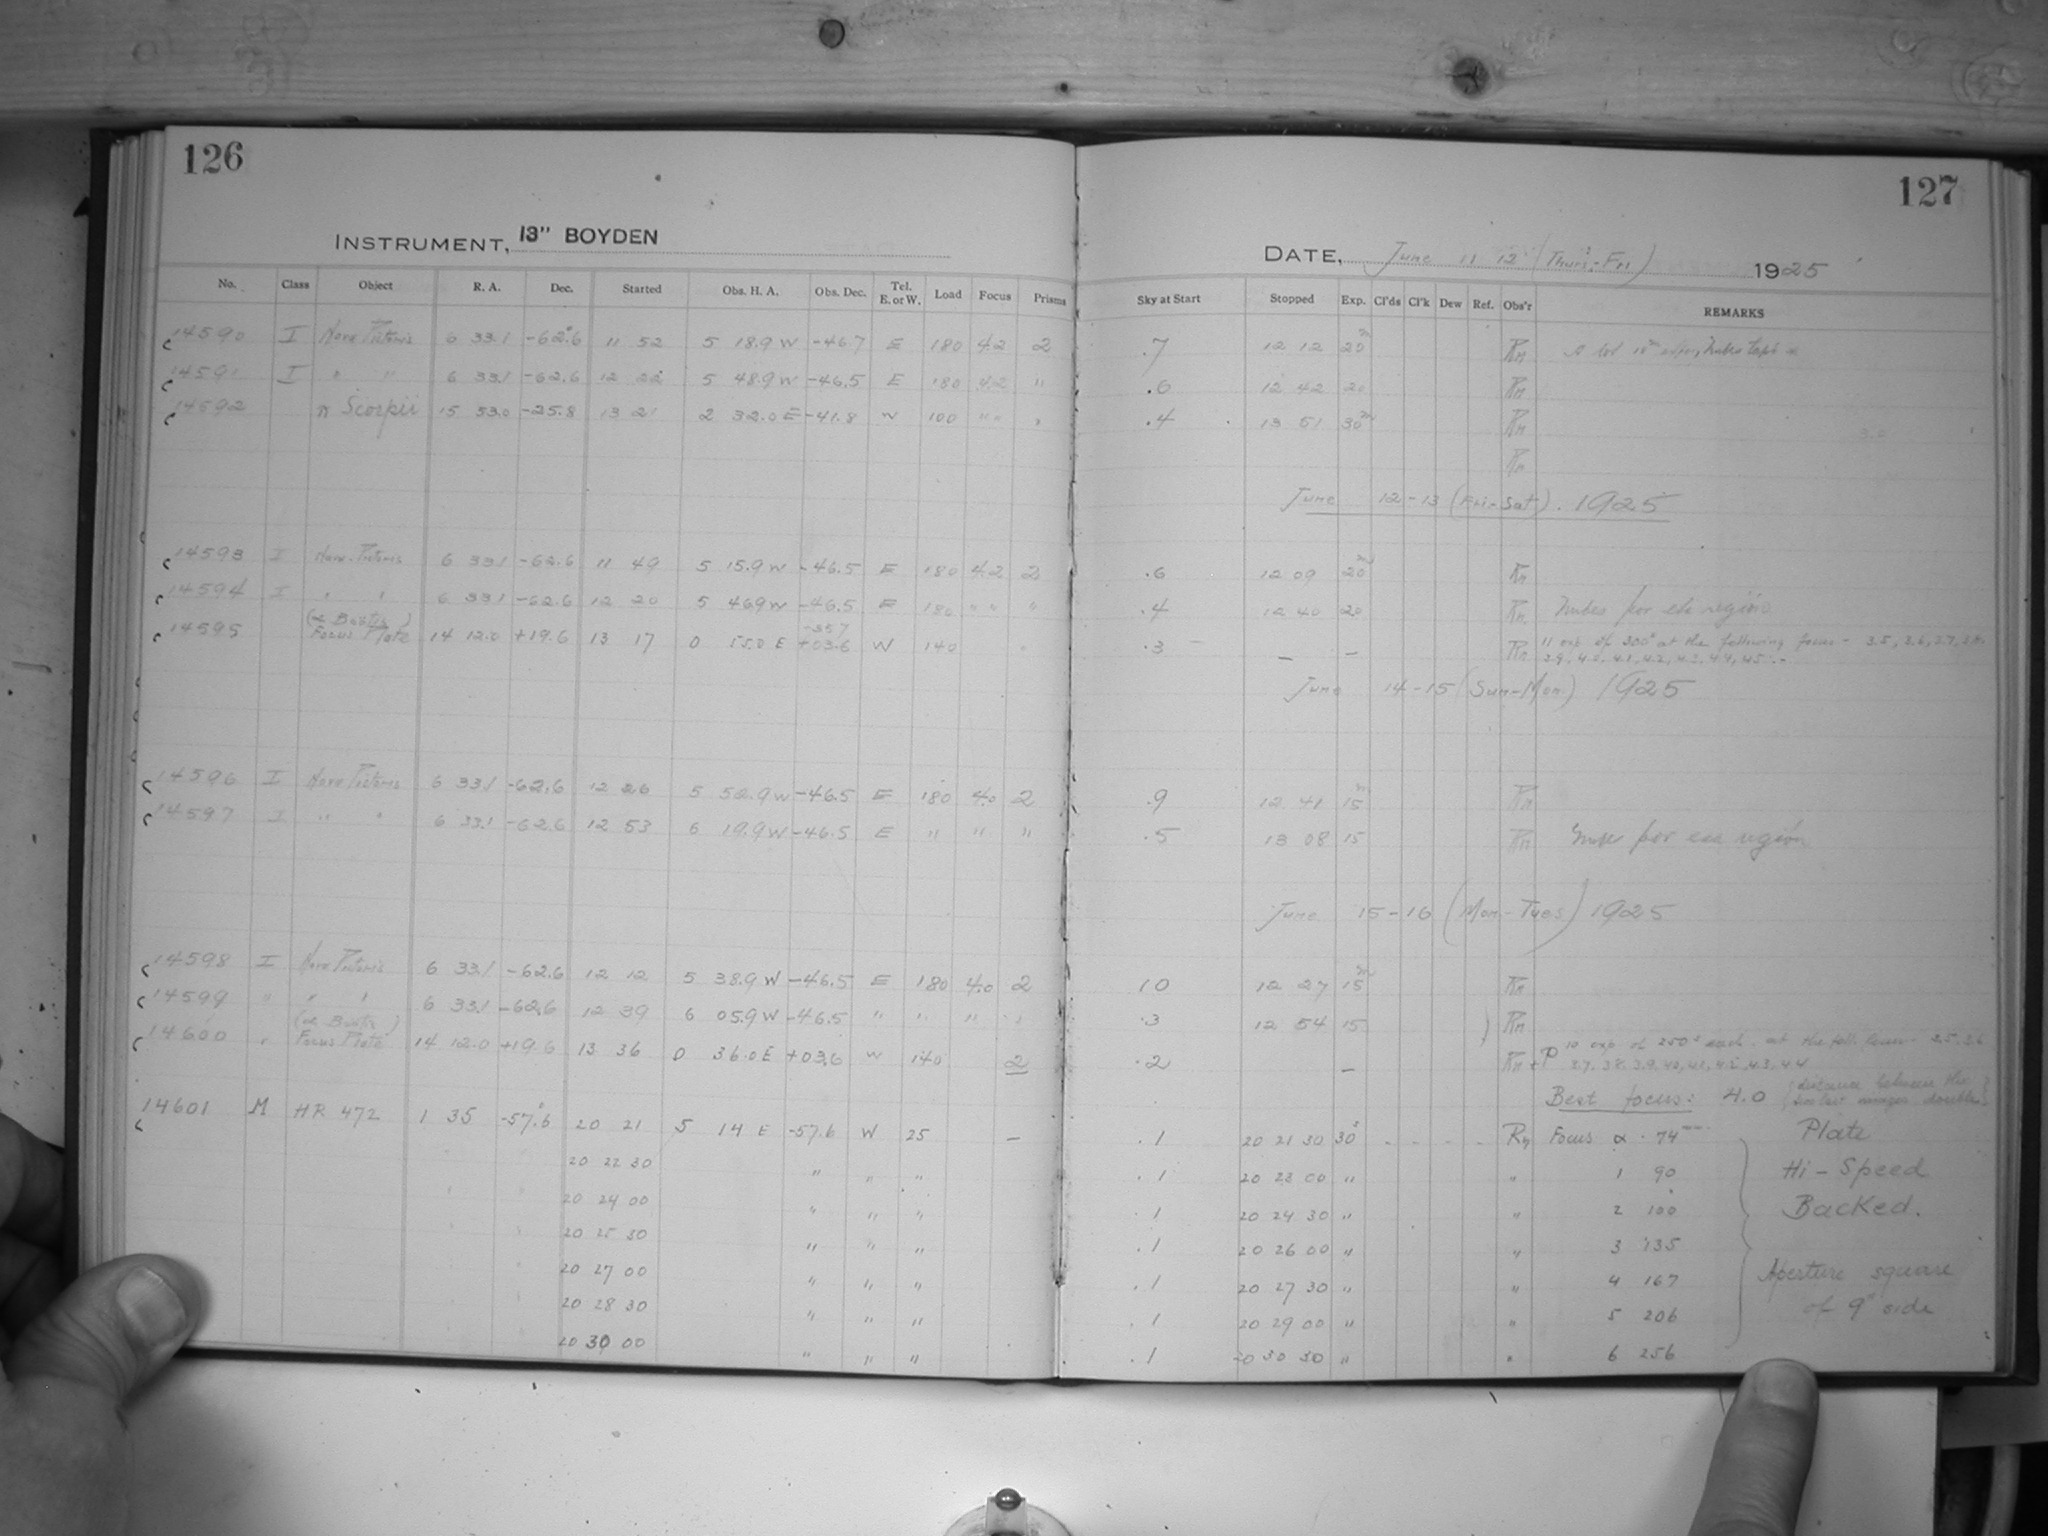 126
INSTRUMENT, 13" BOYDEN
No. Class Object R. A. Dec. Started Obs. H. A. Obs. Dec. Tel. E. or W. Load Focus Prisms
14590 I Nova Pictoris 6 33.1 -62.6 11 52 5 18.9 W -46.7 E 180 4.2 2
14591 I " " 6 33.1 -62.6 12 22 5 48.9 W -46.5 E 180 4.2 "
14592 π Scorpii 15 53.0 -25.8 13 21 2 32.0 E -41.8 W 100 " "
14593 I Nova Pictoris 6 33.1 -62.6 11 49 5 15.9 W -46.5 E 180 4.2 2
14594 I " " 6 33.1 -62.6 12 20 5 46.9 W -46.5 E 180 " " "
(α Bootis)
14595 Focus Plate 14 12.0 +19.6 13 17 0 55.0 E +03.6 W 140
14596 I Nova Pictoris 6 33.1 -62.6 12 26 5 52.9 W -46.5 E 180 4.0 2
14597 I " " 6 33.1 -62.6 12 53 6 19.9 W -46.5 E " " "
14598 I Nova Pictoris 6 33.1 -62.6 12 12 5 38.9 W -46.5 E 180 4.0 2
14599 " " " 6 33.1 -62.6 12 39 6 05.9 W -46.5 " " "
(α Bootis)
14600 " Focus Plate 14 12.0 +19.6 13 36 0 36.0 E +03.6 W 140 2
14601 M HR 472 1 35 -57.6 20 21 5 14 E -57.6 W 25 —
20 22 30 " " "
20 24 00 " " "
20 25 30 " " "
20 27 00 " " "
20 28 30 " " "
20 30 00 " " "
127
DATE, June 11 12 (Thurs.-Fri) 1925
Sky at Start Stopped Exp. Cl'ds Cl'k Dew Ref. Obs'r REMARKS
.7 12 12 20m Rn
.6 12 42 20 Rn
.4 13 51 30m Rn
Rn
June 12-13 (Fri-Sat). 1925
.6 12 09 20m Rn
.4 12 40 20 Rn. Nubes por esa región
.3 — — Rn 11 exp of 300s at the following focus - 3.5, 3.6, 3.7, 3.8,
3.9, 4.0, 4.1, 4.2, 4.3, 4.4, 4.5.-
June 14-15 (Sun-Mon.) 1925
.9 12 41 15m Rn
.5 13 08 15 Rn Nubes por esa región
June 15-16 (Mon-Tues) 1925
10 12 27 15m Rn
.3 12 54 15 Rn
.2 — Rn + P 10 exp of 250s each at the foll. focus- 3.5, 3.6
3.7, 3.8, 3.9, 4.0, 4.1, 4.2, 4.3, 4.4
Best focus: 4.0 (distance between the
.1 20 21 30 30s - - - - Ry Focus α .74 Plate
.1 20 23 00 " " 1 90 Hi-Speed
.1 20 24 30 " " 2 100 Backed.
.1 20 26 00 " " 3 135
.1 20 27 30 " " 4 167 Aperture square
.1 20 29 00 " " 5 206 of 9" side
.1 20 30 30 " " 6 256